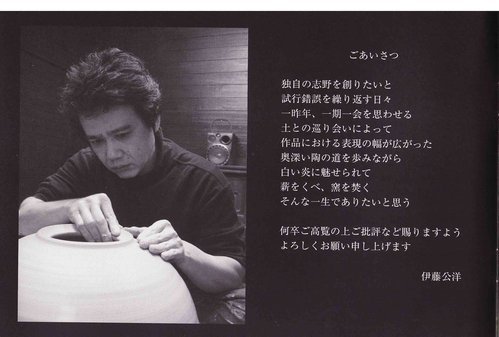 ごあいさつ
独自の志野を創りたいと
試行錯誤を繰り返す日々
一昨年、一期一会を思わせる
土との巡り会いによって
作品における表現の幅が広がった
奥深い陶の道を歩みながら
白い炎に魅せられて
薪をくべ、窯を焚く
そんな一生でありたいと思う
何卒ご高覧の上ご批評など賜りますよう
よろしくお願い申し上げます
伊藤公洋